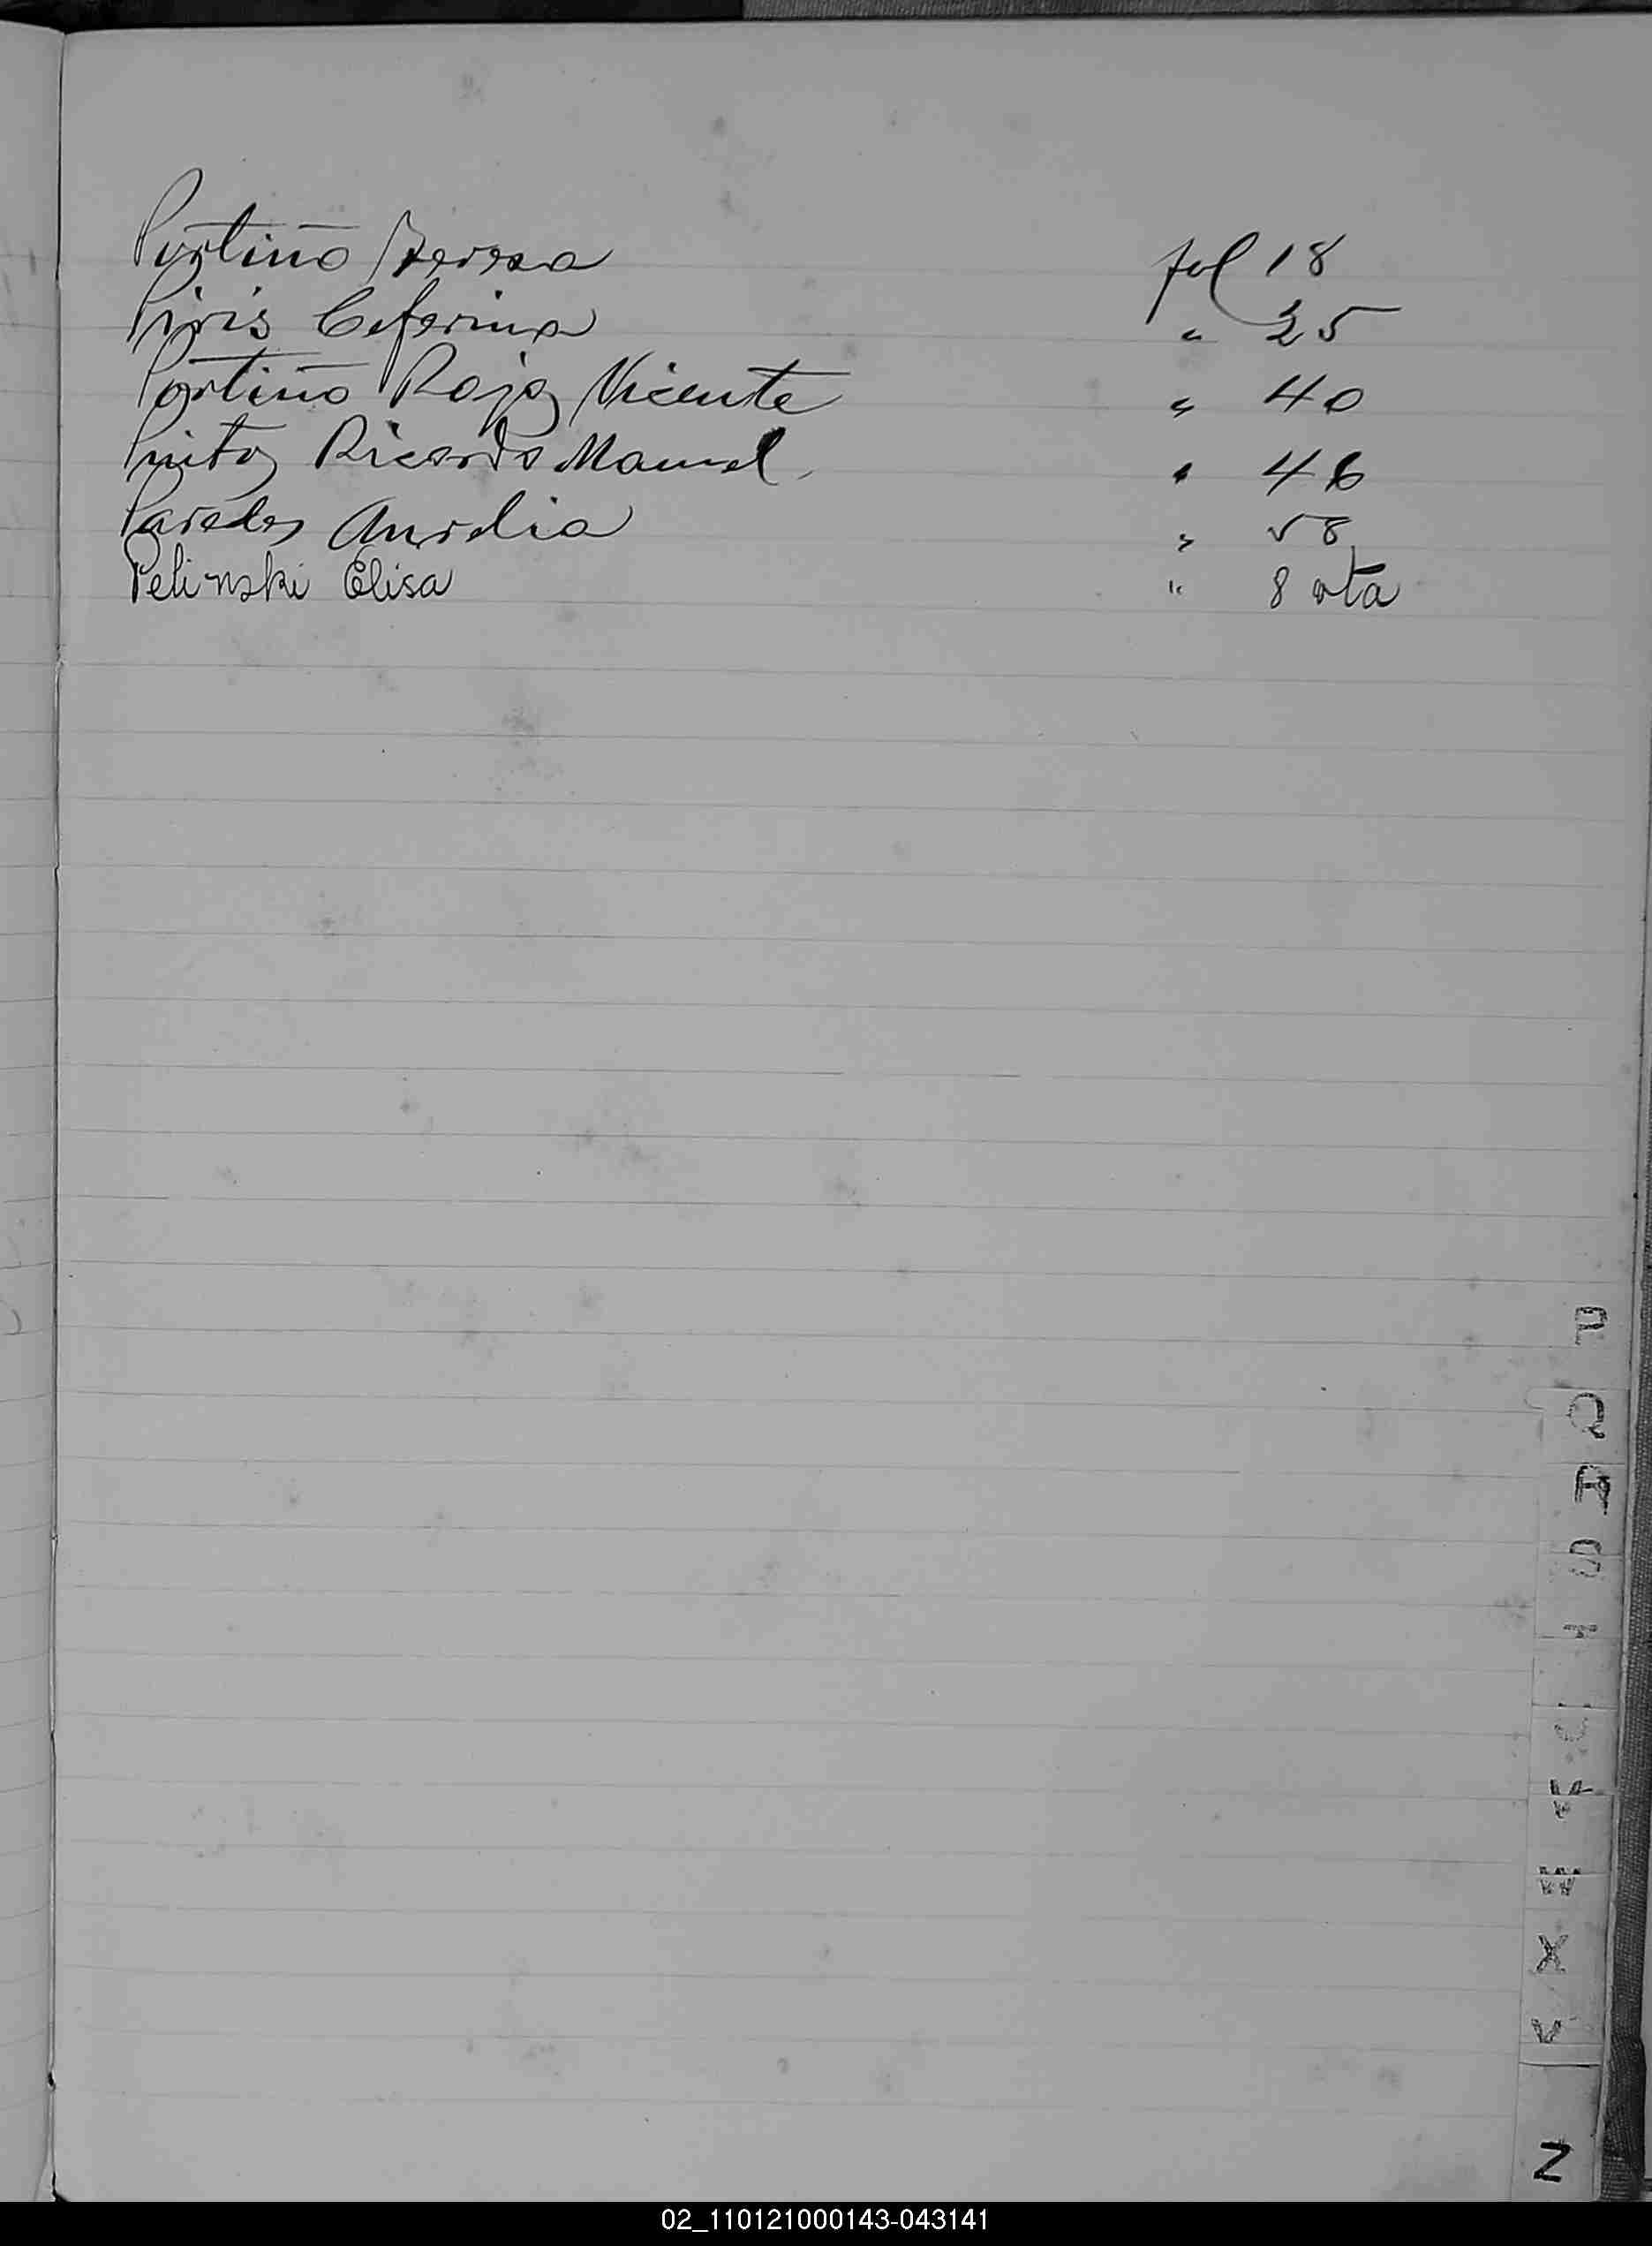 Portiño Teresa fol 18
Piris Ceferina " 25
Portiño Rojas Vicente " 40
Pintos Ricardo Manuel " 46
Paredes Aurelia " 58
Pelinski Elisa " 8 vta
P
Q
R
S
T
U
V
W
X
Y
Z
02_110121000143-043141